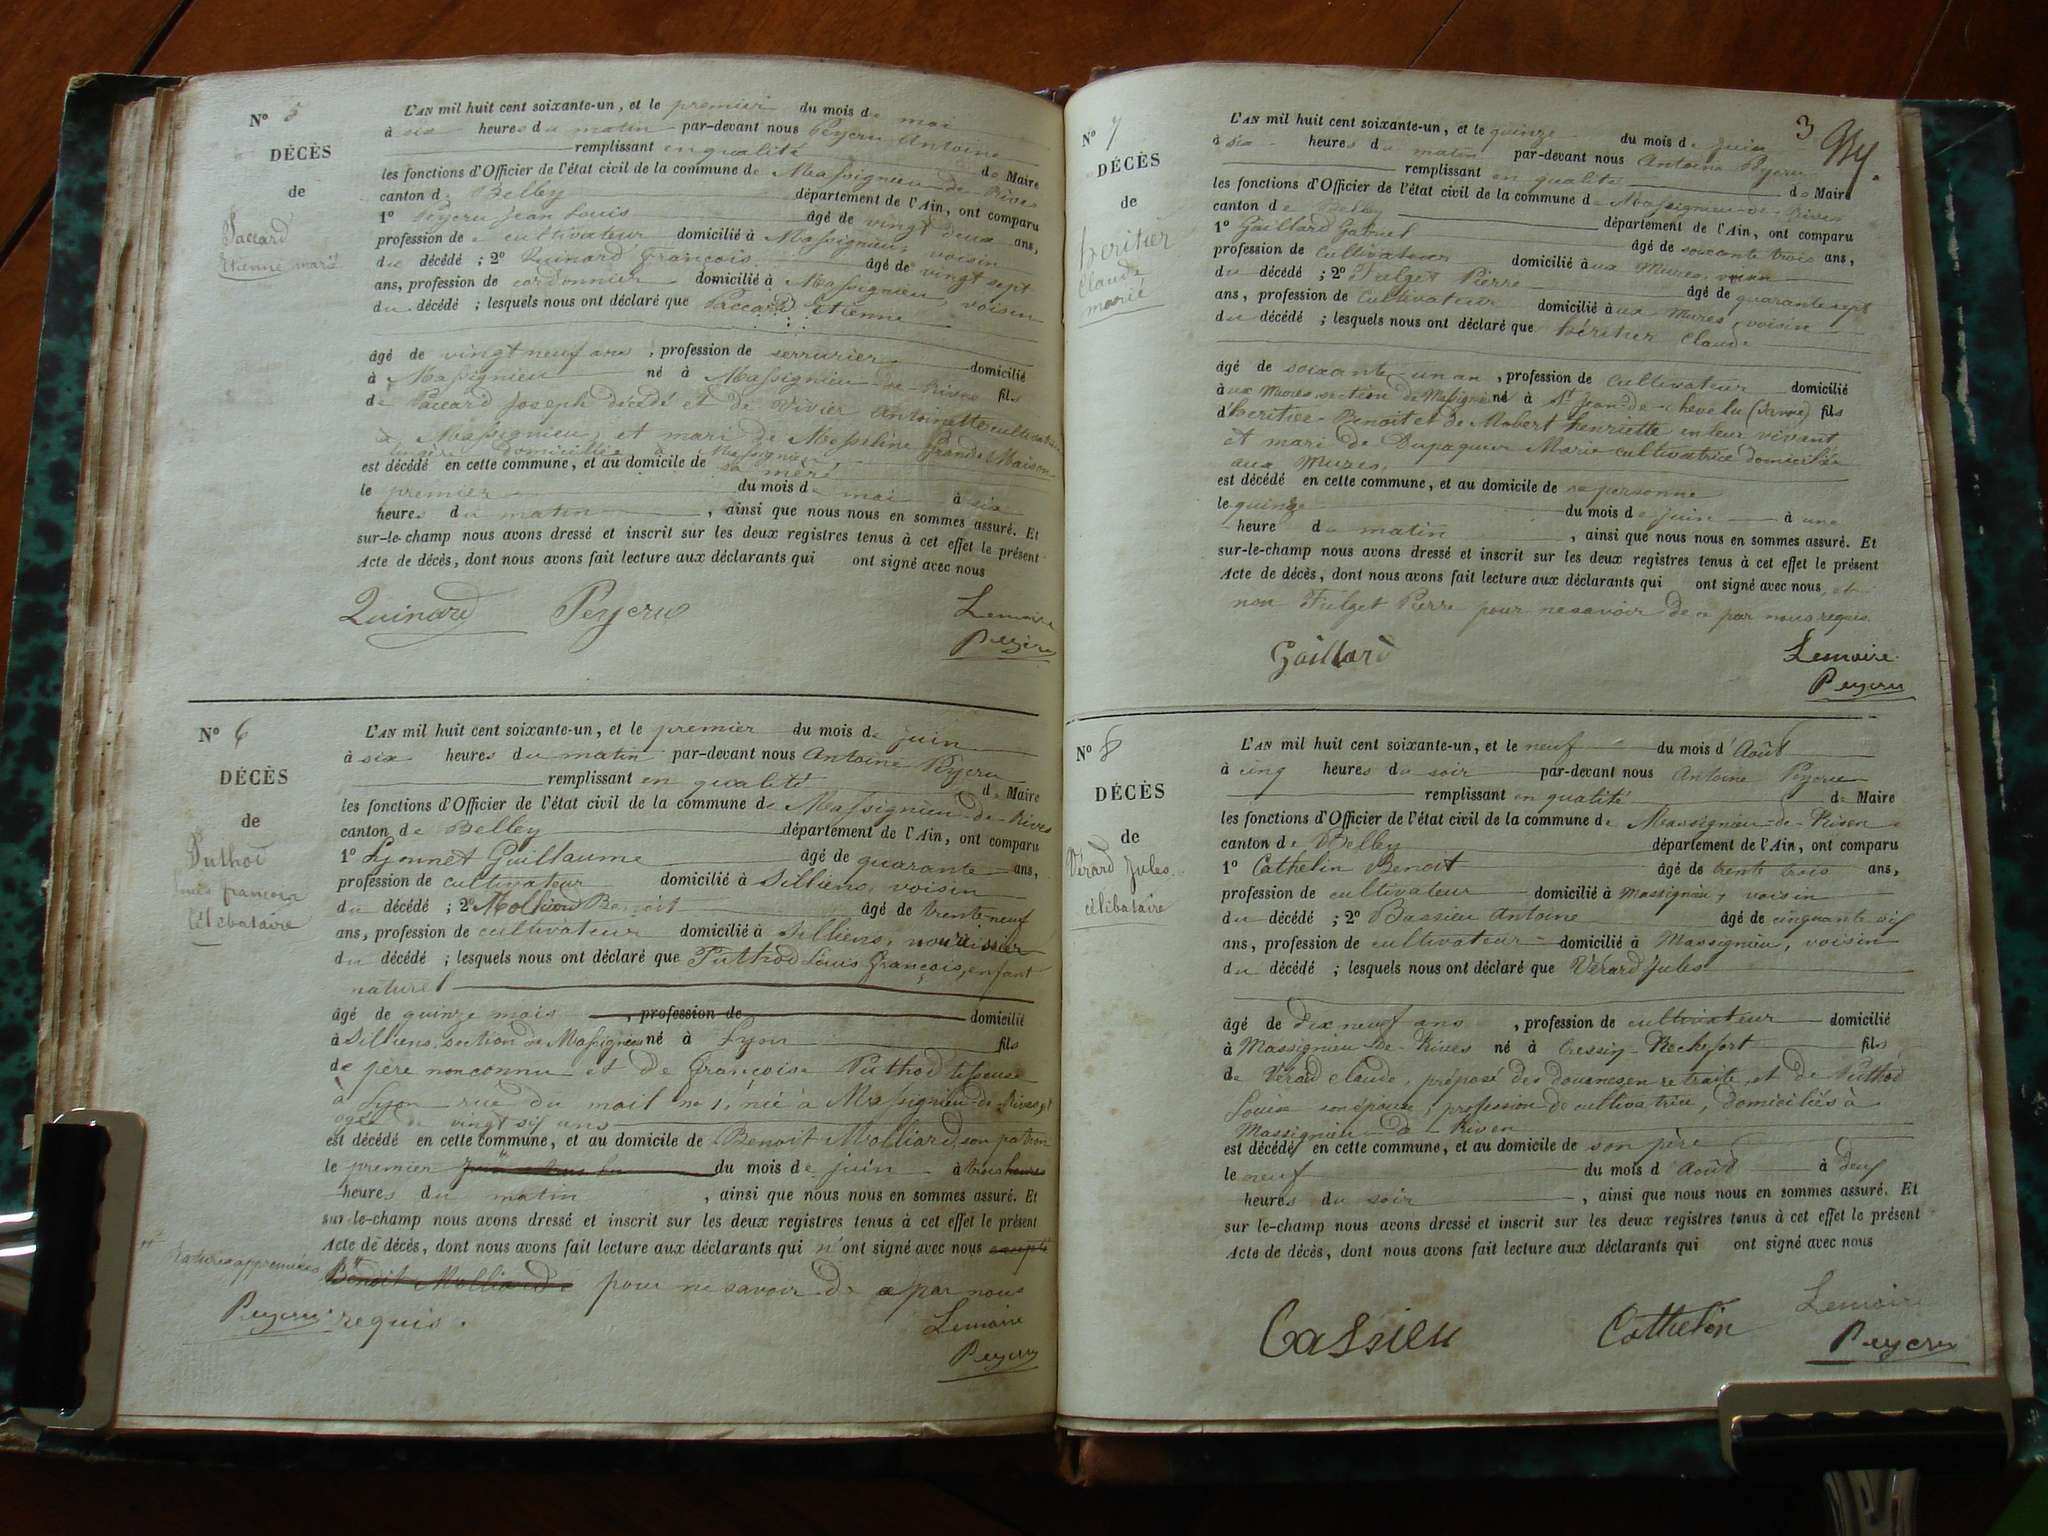 N° 5
DÉCÈS
de
Paccard
Etienne marié
L'AN mil huit cent soixante-un, et le premier du mois de mai
à six heures du matin par-devant nous Peycru Antoine
remplissant en qualité de Maire
les fonctions d'Officier de l'état civil de la commune de Massignieu-de-Rives
canton de Belley département de l'Ain, ont comparu
1° Peycru Jean Louis âgé de vingt deux ans,
profession de cultivateur domicilié à Massignieu, voisin
du décédé ; 2° Quinard François âgé de vingt sept
ans, profession de cordonnier domicilié à Massignieu, voisin
du décédé ; lesquels nous ont déclaré que Paccard Etienne
âgé de vingt neuf ans, profession de serrurier domicilié
à Massignieu né à Massignieu-de-Rives fils
de Paccard Joseph décédé et de Vivier Antoinette cultivatrice
à Massignieu, et mari de Masseline Grande Maison
lingère domiciliée à Massignieu
est décédé en cette commune, et au domicile de sa mère
le premier du mois de mai à six
heures du matin, ainsi que nous nous en sommes assuré. Et
sur-le-champ nous avons dressé et inscrit sur les deux registres tenus à cet effet le présent
Acte de décès, dont nous avons fait lecture aux déclarants qui ont signé avec nous
Quinard Peycru Lemaire
Peycru
N° 6
DÉCÈS
de
Puthod
Louis françois
Célebataire
L'AN mil huit cent soixante-un, et le premier du mois de juin
à six heures du matin par-devant nous Antoine Peycru
remplissant en qualité de Maire
les fonctions d'Officier de l'état civil de la commune de Massignieu-de-Rives
canton de Belley département de l'Ain, ont comparu
1° Lyonnet Guillaume âgé de quarante ans,
profession de cultivateur domicilié à Silliens, voisin
du décédé ; 2° Molliard Benoit âgé de trente-neuf
ans, profession de cultivateur domicilié à Silliens, nouricier
du décédé ; lesquels nous ont déclaré que Puthod Louis François, enfant
naturel
âgé de quinze mois, profession de domicilié
à Silliens, section de Massignieu né à Lyon fils
de père nonconnu et de Françoise Puthod tisseuse
à Lyon rue du mail no 1, née à Massignieu-de-Rives, et
agée de vingt six ans
est décédé en cette commune, et au domicile de Benoit Molliard, son patron
le premier du mois de juin à trois heures
heures du matin, ainsi que nous nous en sommes assuré. Et
sur-le-champ nous avons dressé et inscrit sur les deux registres tenus à cet effet le présent
Acte de décès, dont nous avons fait lecture aux déclarants qui n'ont signé avec nous excepté
Benoit Molliard pour ne savoir de ce par nous
requis.
Ratures approuvées
Peycru
Lemaire
Peycru
3
N° 7
DÉCÈS
de
héritier
Claude
marié
L'AN mil huit cent soixante-un, et le quinze du mois de juin
à six heures du matin par-devant nous Antoine Peycru
remplissant en qualité de Maire
les fonctions d'Officier de l'état civil de la commune de Massignieu-de-Rives
canton de Belley département de l'Ain, ont comparu
1° Gaillard Gabriel âgé de soixante trois ans,
profession de Cultivateur domicilié aux Mures, voisin
du décédé ; 2° Fulget Pierre âgé de quarante sept
ans, profession de Cultivateur domicilié aux Mures, voisin
du décédé ; lesquels nous ont déclaré que héritier Claude
âgé de soixante-un an, profession de Cultivateur domicilié
aux Mures, section de Massignieu né à St Jean-de-Chevelu (Savoie) fils
d'héritier Benoit et de Mabert henriette en leur vivant
et mari de Dupaqueur Marie cultivatrice domiciliée
aux Mures,
est décédé en cette commune, et au domicile de sa personne
le quinze du mois de juin à une
heure du matin, ainsi que nous nous en sommes assuré. Et
sur-le-champ nous avons dressé et inscrit sur les deux registres tenus à cet effet le présent
Acte de décès, dont nous avons fait lecture aux déclarants qui ont signé avec nous, et
non Fulget Pierre pour ne savoir de ce par nous requis.
Gaillard Lemaire
Peycru
N° 8
DÉCÈS
de
Vérard Jules
célibataire
L'AN mil huit cent soixante-un, et le neuf du mois d'Août
à cinq heures du soir par-devant nous Antoine Peycru
remplissant en qualité de Maire
les fonctions d'Officier de l'état civil de la commune de Massignieu-de-Rives
canton de Belley département de l'Ain, ont comparu
1° Cathelin Benoit âgé de trente trois ans,
profession de cultivateur domicilié à Massignieu, voisin
du décédé ; 2° Bassieu Antoine âgé de cinquante six
ans, profession de cultivateur domicilié à Massignieu, voisin
du décédé ; lesquels nous ont déclaré que Vérard Jules
âgé de dix neuf ans, profession de cultivateur domicilié
à Massignieu de Rives né à Cressin-Rochefort fils
de Vérard Claude, préposé des douanes en retraite, et de Puthod
Louise son épouse, profession de cultivatrice, domiciliés à
Massignieu de Rives
est décédé en cette commune, et au domicile de son père
le neuf du mois d'Août à deux
heures du soir, ainsi que nous nous en sommes assuré. Et
sur-le-champ nous avons dressé et inscrit sur les deux registres tenus à cet effet le présent
Acte de décès, dont nous avons fait lecture aux déclarants qui ont signé avec nous
Cassieu Cathelin Lemaire
Peycru